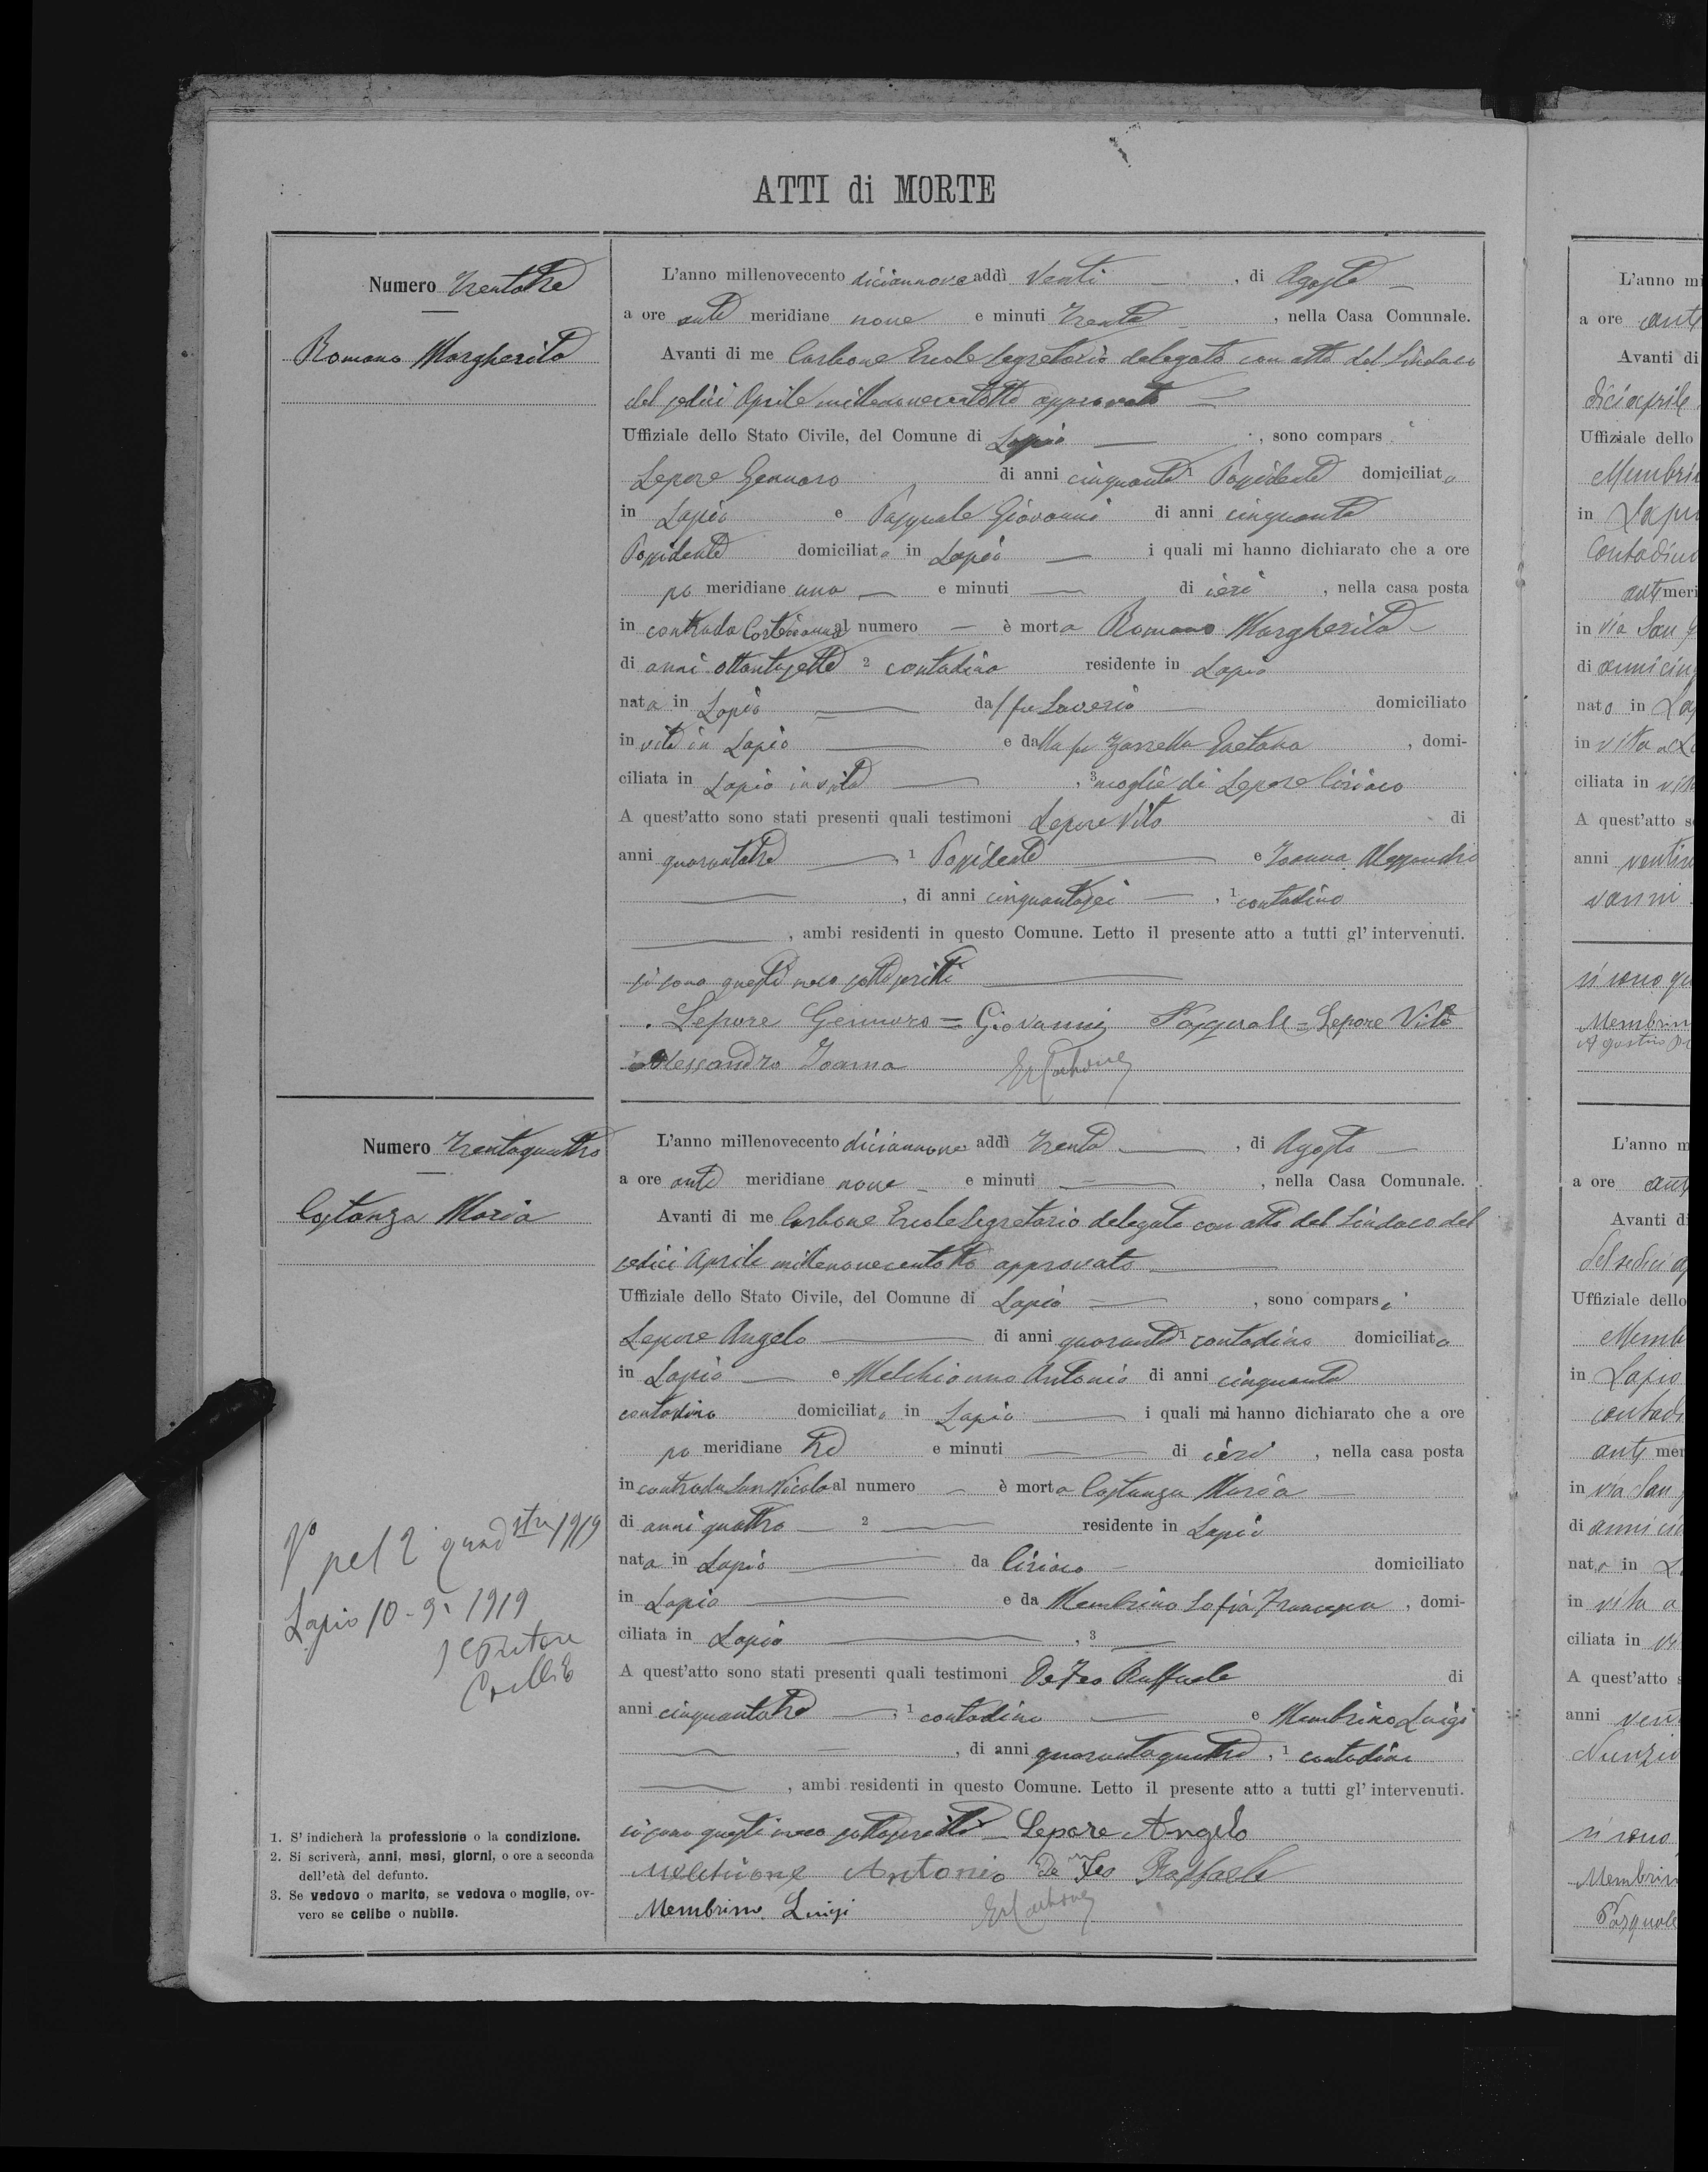 ATTI di MORTE
Numero Trentatre
Romano Margherita
L'anno millenovecento diciannove addì Venti, di Agosto
a ore ante meridiane nove e minuti Trenta, nella Casa Comunale.
Avanti di me Carbone Ercole Segretario delegato con atto del Sindaco
del sedici Aprile millenovecentotto approvato
Uffiziale dello Stato Civile, del Comune di Lapio, sono comparsi
Lepore Gennaro di anni cinquanta 1 Possidente domiciliato
in Lapio e Pasquale Giovanni di anni cinquanta
Possidente domiciliato in Lapio i quali mi hanno dichiarato che a ore
po meridiane una e minuti di ieri, nella casa posta
in contrada al numero è morta Romano Margherita
di anni ottantasette 2 contadina residente in Lapio
nata in Lapio dal fu Saverio domiciliato
in vita in Lapio e dalla fu Zarrella Gaetana, domi-
ciliata in Lapio in vita, 3 moglie di Lepore Ciriaco
A quest'atto sono stati presenti quali testimoni Lepore Vito di
anni quarantatre, 1 Possidente e Ioanna Alessandro
, di anni cinquantasei, 1 contadino
, ambi residenti in questo Comune. Letto il presente atto a tutti gl' intervenuti.
si sono questi meco sottoscritti
Lepore Gennaro = Giovanni Pasquale = Lepore Vito
Alessandro Ioanna Er Carbone
Numero Trentaquattro
Costanza Maria
L'anno millenovecento diciannove addì Trenta, di Agosto
a ore ante meridiane nove e minuti, nella Casa Comunale.
Avanti di me Carbone Ercole Segretario delegato con atto del Sindaco del
sedici Aprile millenovecentotto approvato
Uffiziale dello Stato Civile, del Comune di Lapio, sono comparsi
Lepore Angelo di anni quaranta 1 contadino domiciliato
in Lapio e Melchionna Antonio di anni cinquanta
contadino domiciliato in Lapio i quali mi hanno dichiarato che a ore
po meridiane tre e minuti di ieri, nella casa posta
in contrada San Nicola al numero è morta Costanza Maria
di anni quattro 2 residente in Lapio
nata in Lapio da Ciriaco domiciliato
in Lapio e da Membrino Sofia Francesca, domi-
ciliata in Lapio, 3
A quest'atto sono stati presenti quali testimoni De Feo Raffaele di
anni cinquantatre, 1 contadino e Membrino Luigi
, di anni quarantaquattro, 1 contadino
, ambi residenti in questo Comune. Letto il presente atto a tutti gl' intervenuti.
si sono questi meco sottoscritti Lepore Angelo
Melchione Antonio De Feo Raffaele
Membrino Luigi Er Carbone
Vo pel 2 quadstre 1919
Lapio 10-9-1919
Il Pretore
1. S' indicherà la professione o la condizione.
2. Si scriverà, anni, mesi, giorni, o ore a seconda
dell'età del defunto.
3. Se vedovo o marito, se vedova o moglie, ov-
vero se celibe o nubile.
L'anno mi
a ore ant
Avanti di
dici aprile
Uffiziale dello
Membrin
in Lapi
Contadino
ant meri
in via San
di anni cinq
nato in La
in vita a L
ciliata in vit
A quest'atto s
anni ventin
vanni
si sono qu
Membrin
Agostino
L'anno m
a ore ant
Avanti di
del sedici a
Uffiziale dello
Memb
in Lapio
contadi
ant mer
in via San
di anni ci
nato in L
in vita a
ciliata in vi
A quest'atto s
anni vent
Nunzio
si sono
Membrin
Pasquale